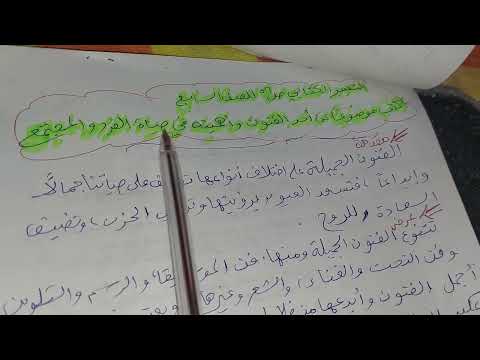 التعبير الكتابي ص٣١ الصف السابع
اكتب موضوعًا عن أحد الفنون وأهميته في حياة الفرد والمجتمع
مقدمة
الفنون الجميلة على اختلاف أنواعها على حياتنا جمالًا
وإبداعًا، فتسعد العيون برؤيتها الحزن، وتضيف
السعادة للروح.
عرض
تتنوع الفنون الجميلة ومنها: فن الموسيقا، والرسم والتلوين
وفن النحت والغناء، والشعر وغيرها
أجمل الفنون وأبدعها